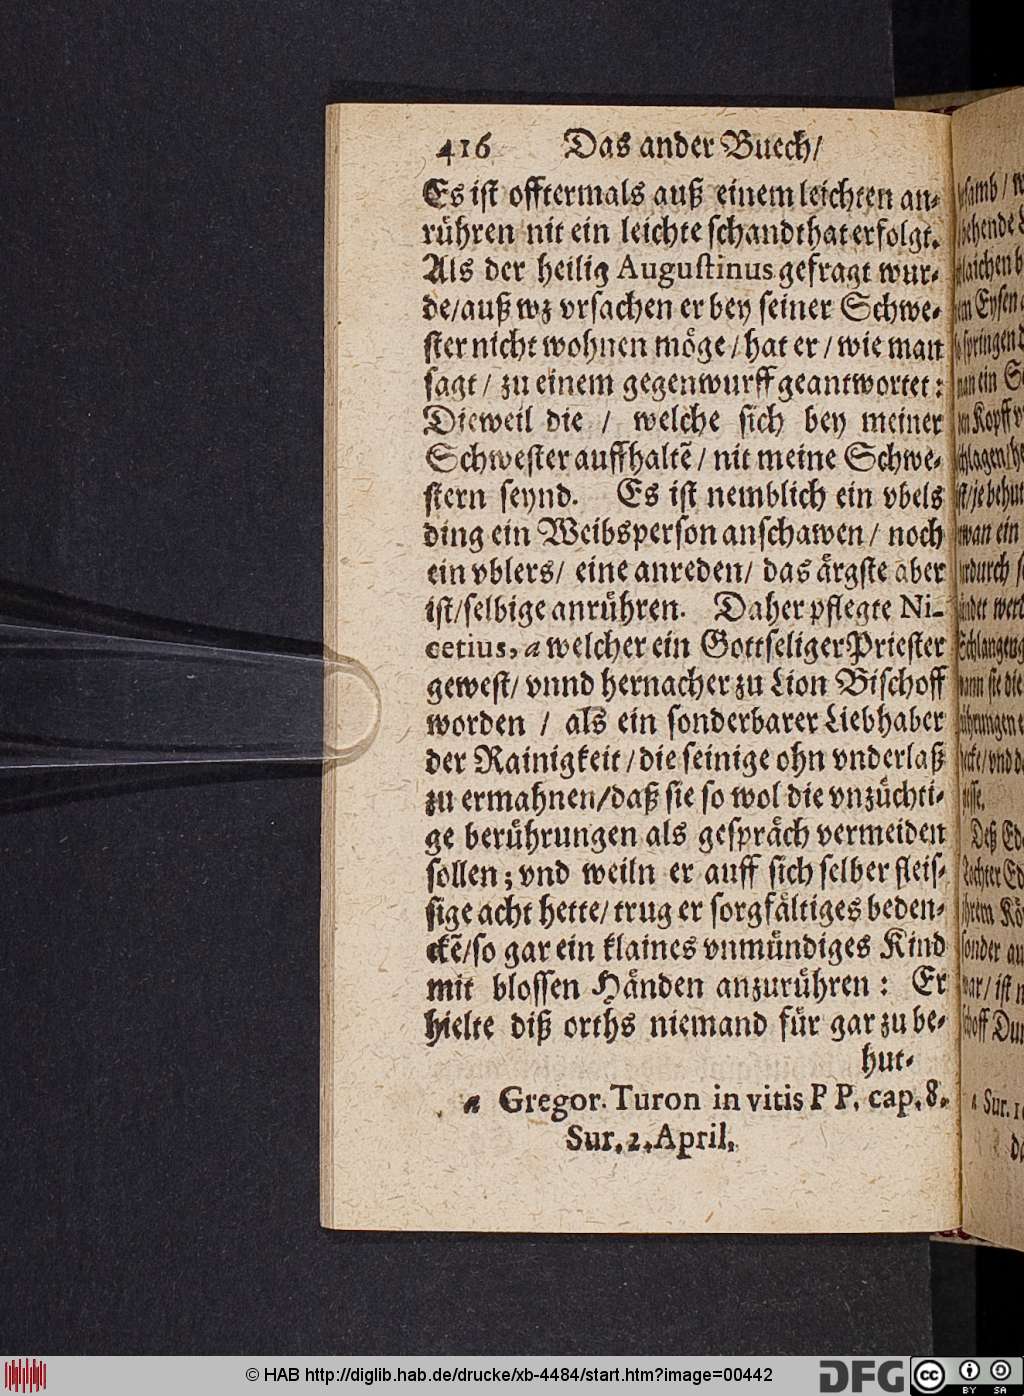 416 Das ander Buech/
Es ist offtermals auß einem leichten an-
rühren nit ein leichte schandthat erfolgt.
Als der heilig Augustinus gefragt wur-
de/auß wz vrsachen er bey seiner Schwe-
ster nicht wohnen möge/hat er/wie man
sagt/zu einem gegenwurff geantwortet:
Dieweil die / welche sich bey meiner
Schwester auffhaltẽ/nit meine Schwe-
stern seynd. Es ist nemblich ein vbels
ding ein Weibsperson anschawen/noch
ein vblers/ eine anreden/ das ärgste aber
ist/selbige anrühren. Daher pflegte Ni-
cetius, a welcher ein Gottseliger Priester
gewest/vnnd hernacher zu Lion Bischoff
worden / als ein sonderbarer Liebhaber
der Rainigkeit/die seinige ohn vnderlaß
zu ermahnen/daß sie so wol die vnzüchti-
ge berührungen als gespräch vermeiden
sollen; vnd weiln er auff sich selber fleis-
sige acht hette/trug er sorgfältiges beden-
ckẽ/so gar ein klaines vnmündiges Kind
mit blossen Händen anzurühren: Er
hielte diß orths niemand für gar zu be-
hut-
a Gregor. Turon in vitis P P. cap. 8.
Sur. 2. April.
© HAB http://diglib.hab.de/drucke/xb-4484/start.htm?image=00442
DFG
cc BY SA